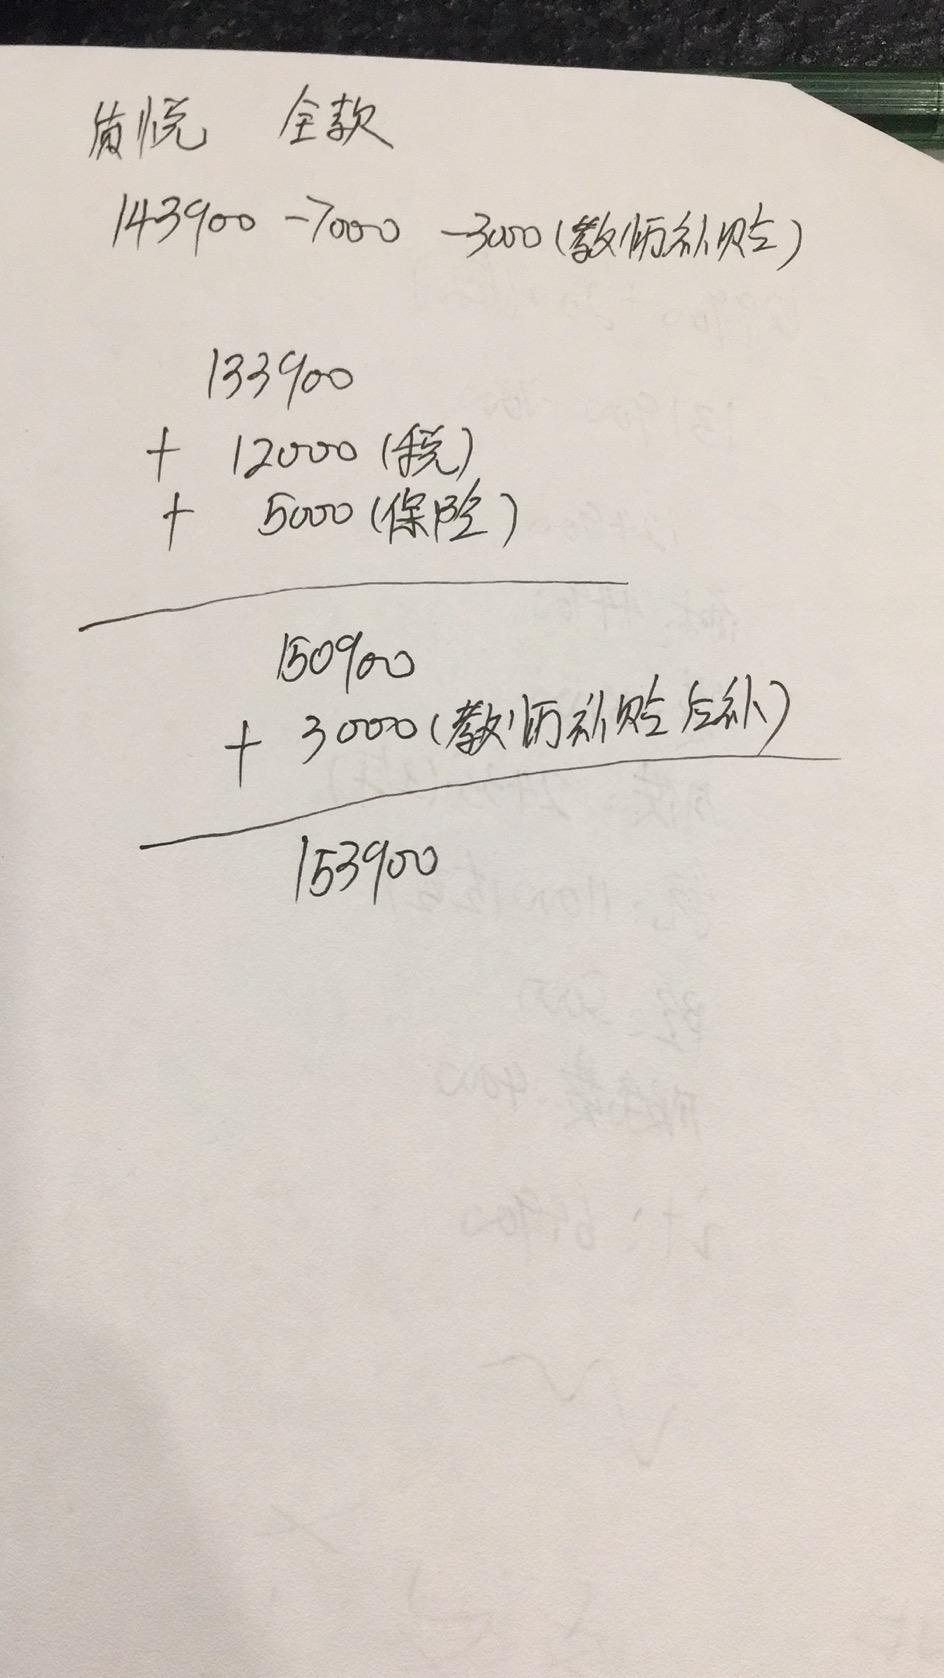 质悦 全款
143900 -7000 -3000(教师补贴)
133900
+ 12000(税)
+ 5000(保险)
150900
+ 3000(教师补贴后补)
153900